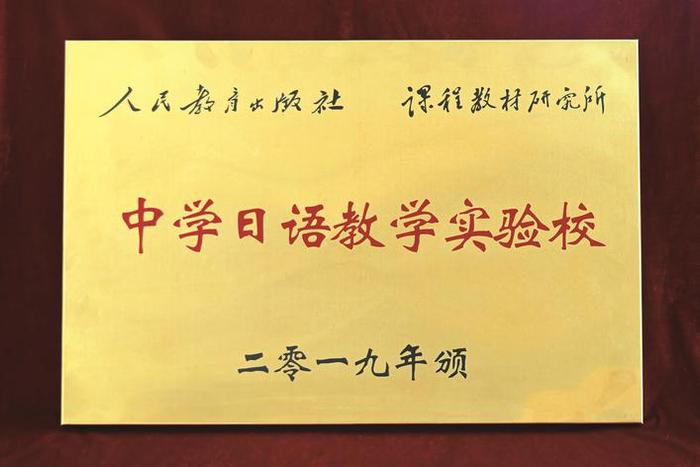 人民教育出版社 课程教材研究所
中学日语教学实验校
二零一九年颁